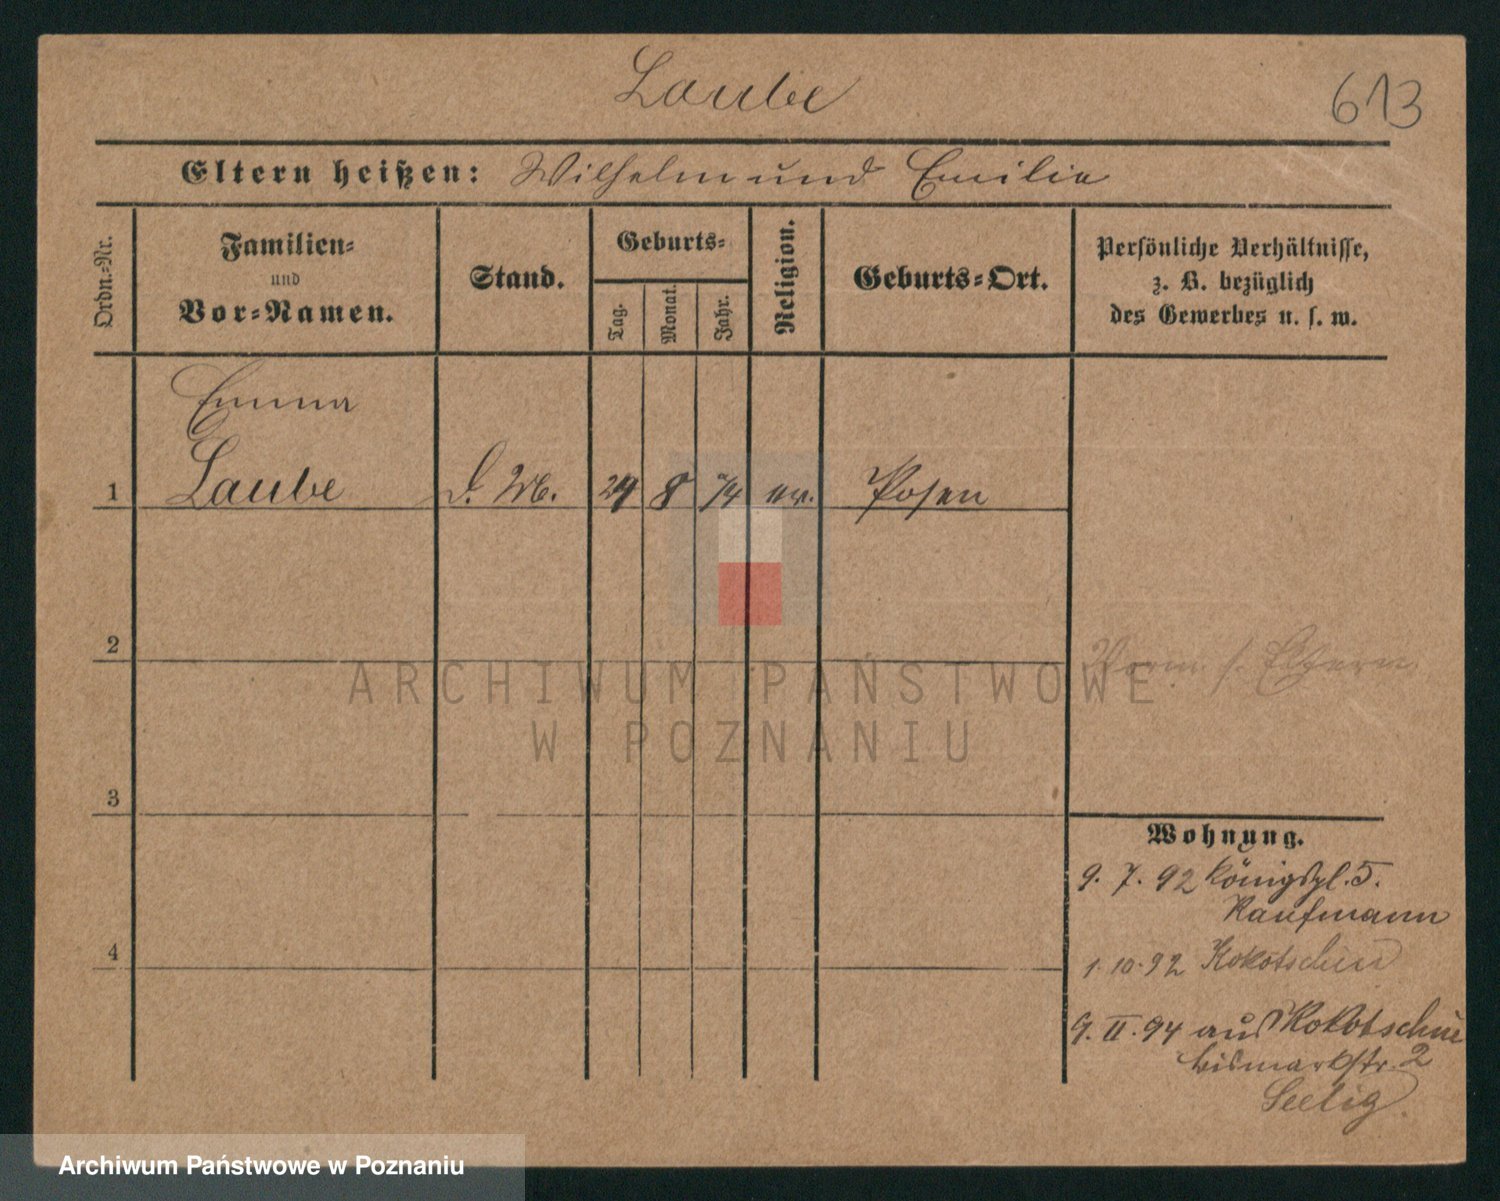 Laube
613
Eltern heißen: Wilhelm und Emilie
Ordn.-Nr.
Familien-
und
Vor-Namen.
Stand.
Geburts-
Tag.
Monat.
Jahr.
Religion.
Geburts-Ort.
Persönliche Verhältnisse,
z. B. bezüglich
des Gewerbes u. s. w.
Emma
1 Laube D. M. 24 8 74 ev. Posen
2
Form. s. Eltern
3
4
ARCHIWUM PAŃSTWOWE
W POZNANIU
Wohnung.
9. 7. 92 Königspl. 5.
Kaufmann
1. 10. 92 Kokotschin
9. II. 94 aus Kokotschin
Bismarkstr. 2
Seelig
Archiwum Państwowe w Poznaniu